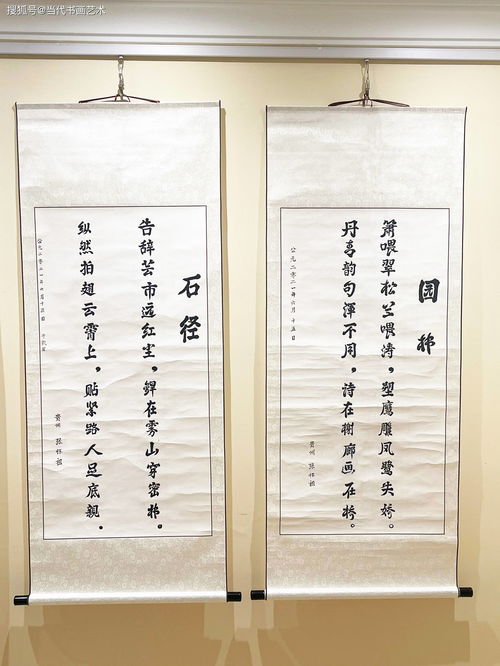 搜狐号@当代书画艺术
园林
箫喂翠松兰喂涛，塑鹰雕凤鹭失娇。
丹青韵句浑不用，诗在榭廊画在桥。
公元二零二一年六月十五日
贵州
石径
告辞芸市远红尘，鲜在雾山穿密林。
纵然拍翅云霄上，贴紧路人足底亲。
贵州